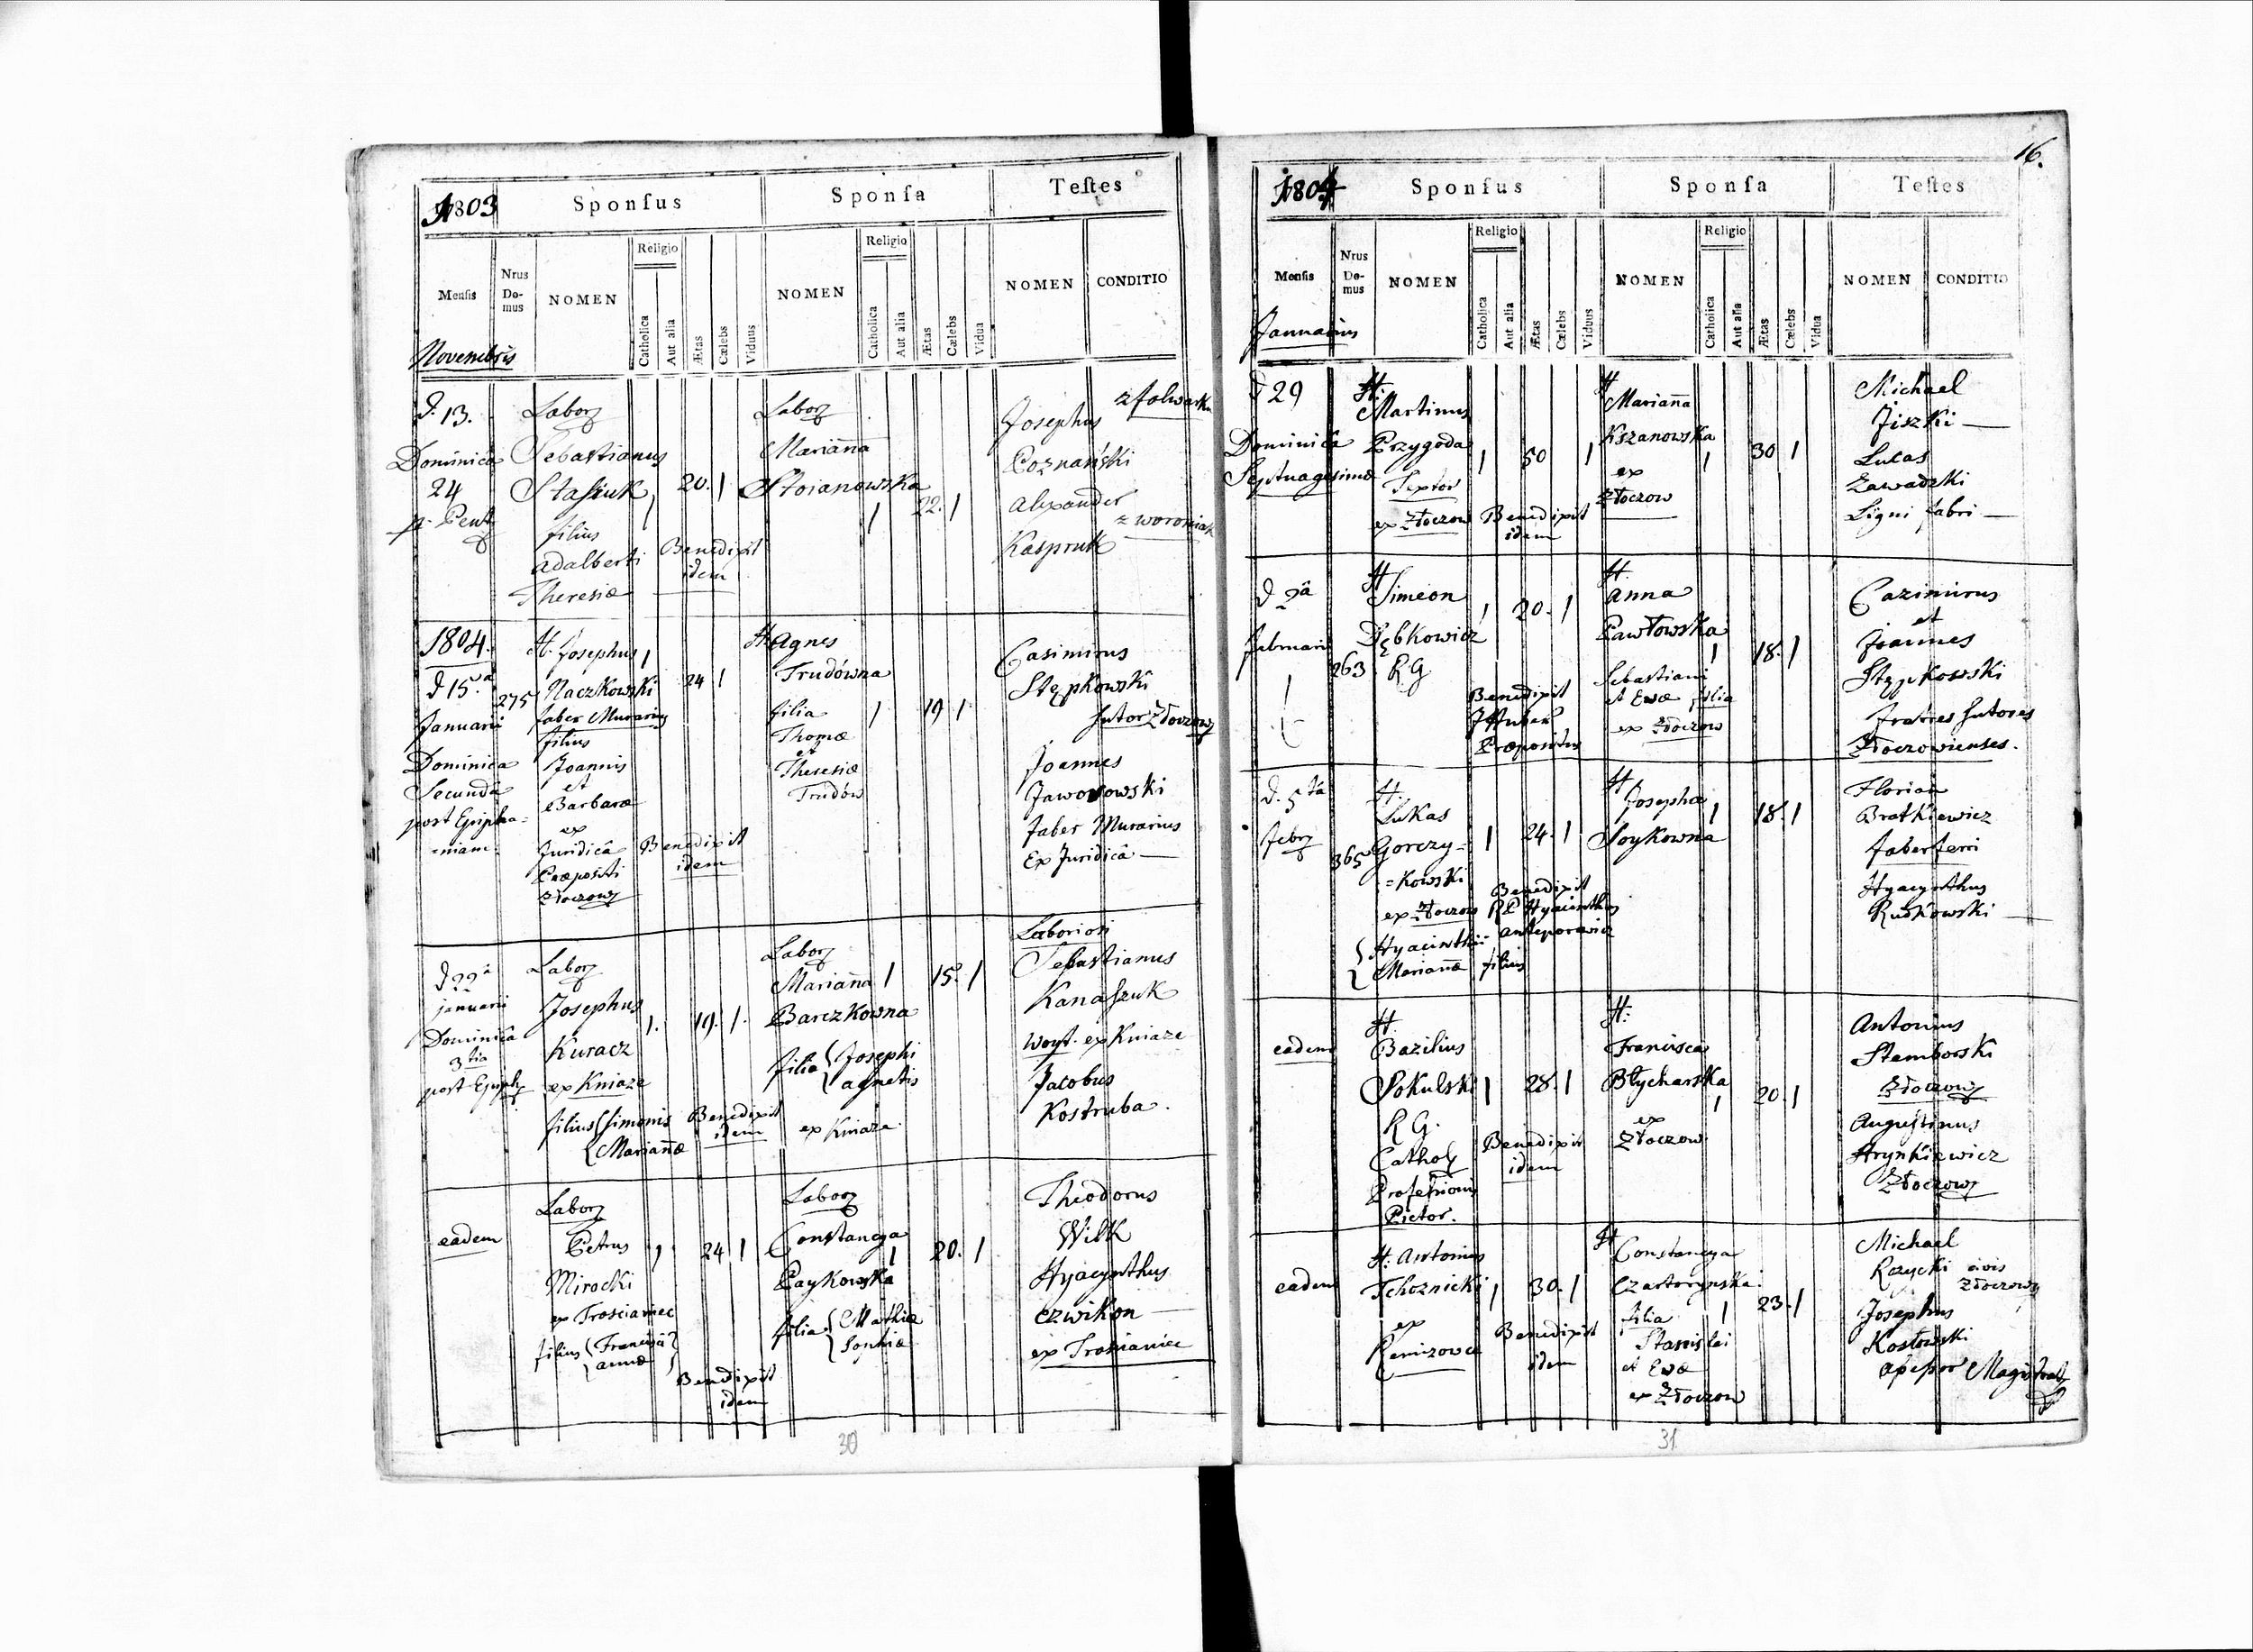 1803
Sponsus
Sponsa
Testes
Mensis
Nrus Domus
NOMEN
Religio
Catholica
Aut alia
Ætas
Cœlebs
Viduus
NOMEN
Religio
Catholica
Aut alia
Ætas
Cœlebs
Vidua
NOMEN
CONDITIO
Novembris
d. 13.
Dominica
24
p. Pent
Labor
Sebastianus
Stasiuk
filius
Adalberti
Theresiæ
1 20. 1
Benedixit
idem
Labor
Marianna
Stoianowska
1 22. 1
Josephus
z folwarku
Poznański
Alexander
z woroniak
Kaspruk
1804.
d 15.a
Januarii
Dominica
Secunda
post Epipha-
-niam.
275
H. Josephus
Naczkowski
faber Murarius
filius
Joannis
et
Barbaræ
ex
Juridicâ
Præpositi
Złoczow
1 24 1
Benedixit
idem
H Agnes
Trudówna
filia
Thomæ
et
Theresiæ
Trudów
1 19 1
Casimirus
Stępkowski
Sutor Złoczow
Joannes
Jaworowski
faber Murarius
Ex Juridicâ —
d 22a
januarii
Dominica
3tia
post Epiph
Labor
Josephus
Kuracz
ex Kniaze
filius { Simonis
{ Mariannæ
1. 19. 1.
Benedixit
idem
Labor
Marianna 1 15. 1
Barczkowna
filia { Josephi
Agnetis
ex Kniaze
Laboriosi
Sebastianus
Kanaszuk
woyt. ex Kniaze
Jacobus
Kostruba.
eadem
Labor
Petrus 1 24 1
Mirocki
ex Trosciamec
filius { Francisci
{ Annæ
Benedixit
idem
Labor
Constancya
1 20. 1
Paykowska
filia { Mathiæ
{ Sophiæ
Theodorus
Wilk
Hyacynthus
Czwikon —
ex Trosianiec
30
16.
1804
Sponsus
Sponsa
Testes
Mensis
Nrus Domus
NOMEN
Religio
Catholica
Aut alia
Ætas
Cœlebs
Viduus
NOMEN
Religio
Catholica
Aut alia
Ætas
Cœlebs
Vidua
NOMEN
CONDITIO
Januarius
d 29
Dominicâ
Septuagesimæ
H.
Martinus
Przygoda
Textor
ex Złoczow
1 50 1
Benedixit
idem
H
Marianna
Kszanowska
ex
Złoczow
1 30 1
Michael
Jiszki —
Lucas
Zawadzki
Ligni fabri —
d 2a
februarii
263
H
Simeon
Dębkowicz
R G
1 20. 1
Benedixit
Præpositus
H.
Anna
Pawłowska
Sebastiani
et Evæ filia
ex Złoczow
1 18. 1
Cazimirus
et
Joannes
Stępkowski
fratres Sutores
Złoczowienses.
d. 5ta
febr
365
H.
Lukas
Gorczy=
=kowski
ex Złoczow
{ Hyacinthi
{ Mariannæ filius
1 24. 1
Benedixit
R P Hyacinthus
H
Josepha
Soykowna
1 18. 1
Florian
Bratkiewicz
faber ferri
Hyacynthus
Rudkowski —
eadem
H.
Bazilius
Sokulski
R G.
Cathol
Professionis
Pictor.
1 28. 1
Benedixit
idem
H.
Francisca
Błycharska
ex
Złoczow
1 20. 1
Antonius
Stamborski
Złoczow
Augustinus
Hrynkiewicz
Złoczow
eadem
H. Antonius
Tchoznicki
ex
Remizowce
1 30. 1
Benedixit
idem
H
Constancya
Czartorynska.
filia
Stanislai
et Evæ
ex Złoczow
1 23. 1
Michael
Rzycki civis
Złoczow
Josephus
Kosłowski
Assessor Magistrat
31